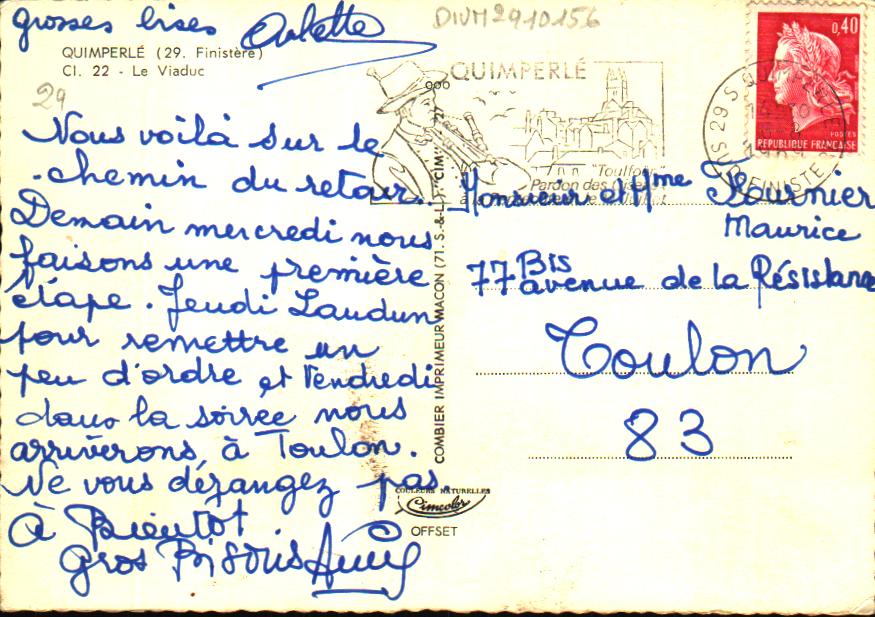 grosses bises Arlette
DIVM2910156
QUIMPERLÉ (29. Finistère)
Cl. 22 - Le Viaduc
29
Nous voilà sur le
chemin du retour.
Demain mercredi nous
faisons une première
étape. Jeudi Laudun
pour remettre un
peu d'ordre et Vendredi
dans la soirée nous
arriverons à Toulon.
Ne vous dérangez pas
À Bientôt
Gros Bisous
COMBIER IMPRIMEUR MACON (71. S.-&-L.) "CIM"
COULEURS NATURELLES
Cimcolor
OFFSET
QUIMPERLÉ
"Toulfoën"
Pardon des Oiseaux
0,40
POSTES
REPUBLIQUE FRANÇAISE
29 S
FINISTERE
Monsieur et Mme Fournier
Maurice
77 Bis avenue de la Résistance
Toulon
83